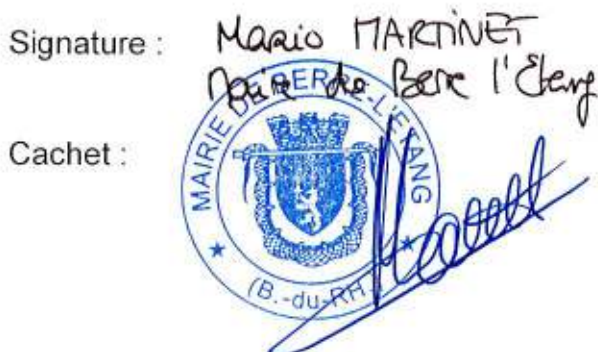 Signature : Mario MARTINET
Maire de Berre l'Etang
Cachet :
MAIRIE DE BERRE-L'ETANG
(B.-du-RH.)